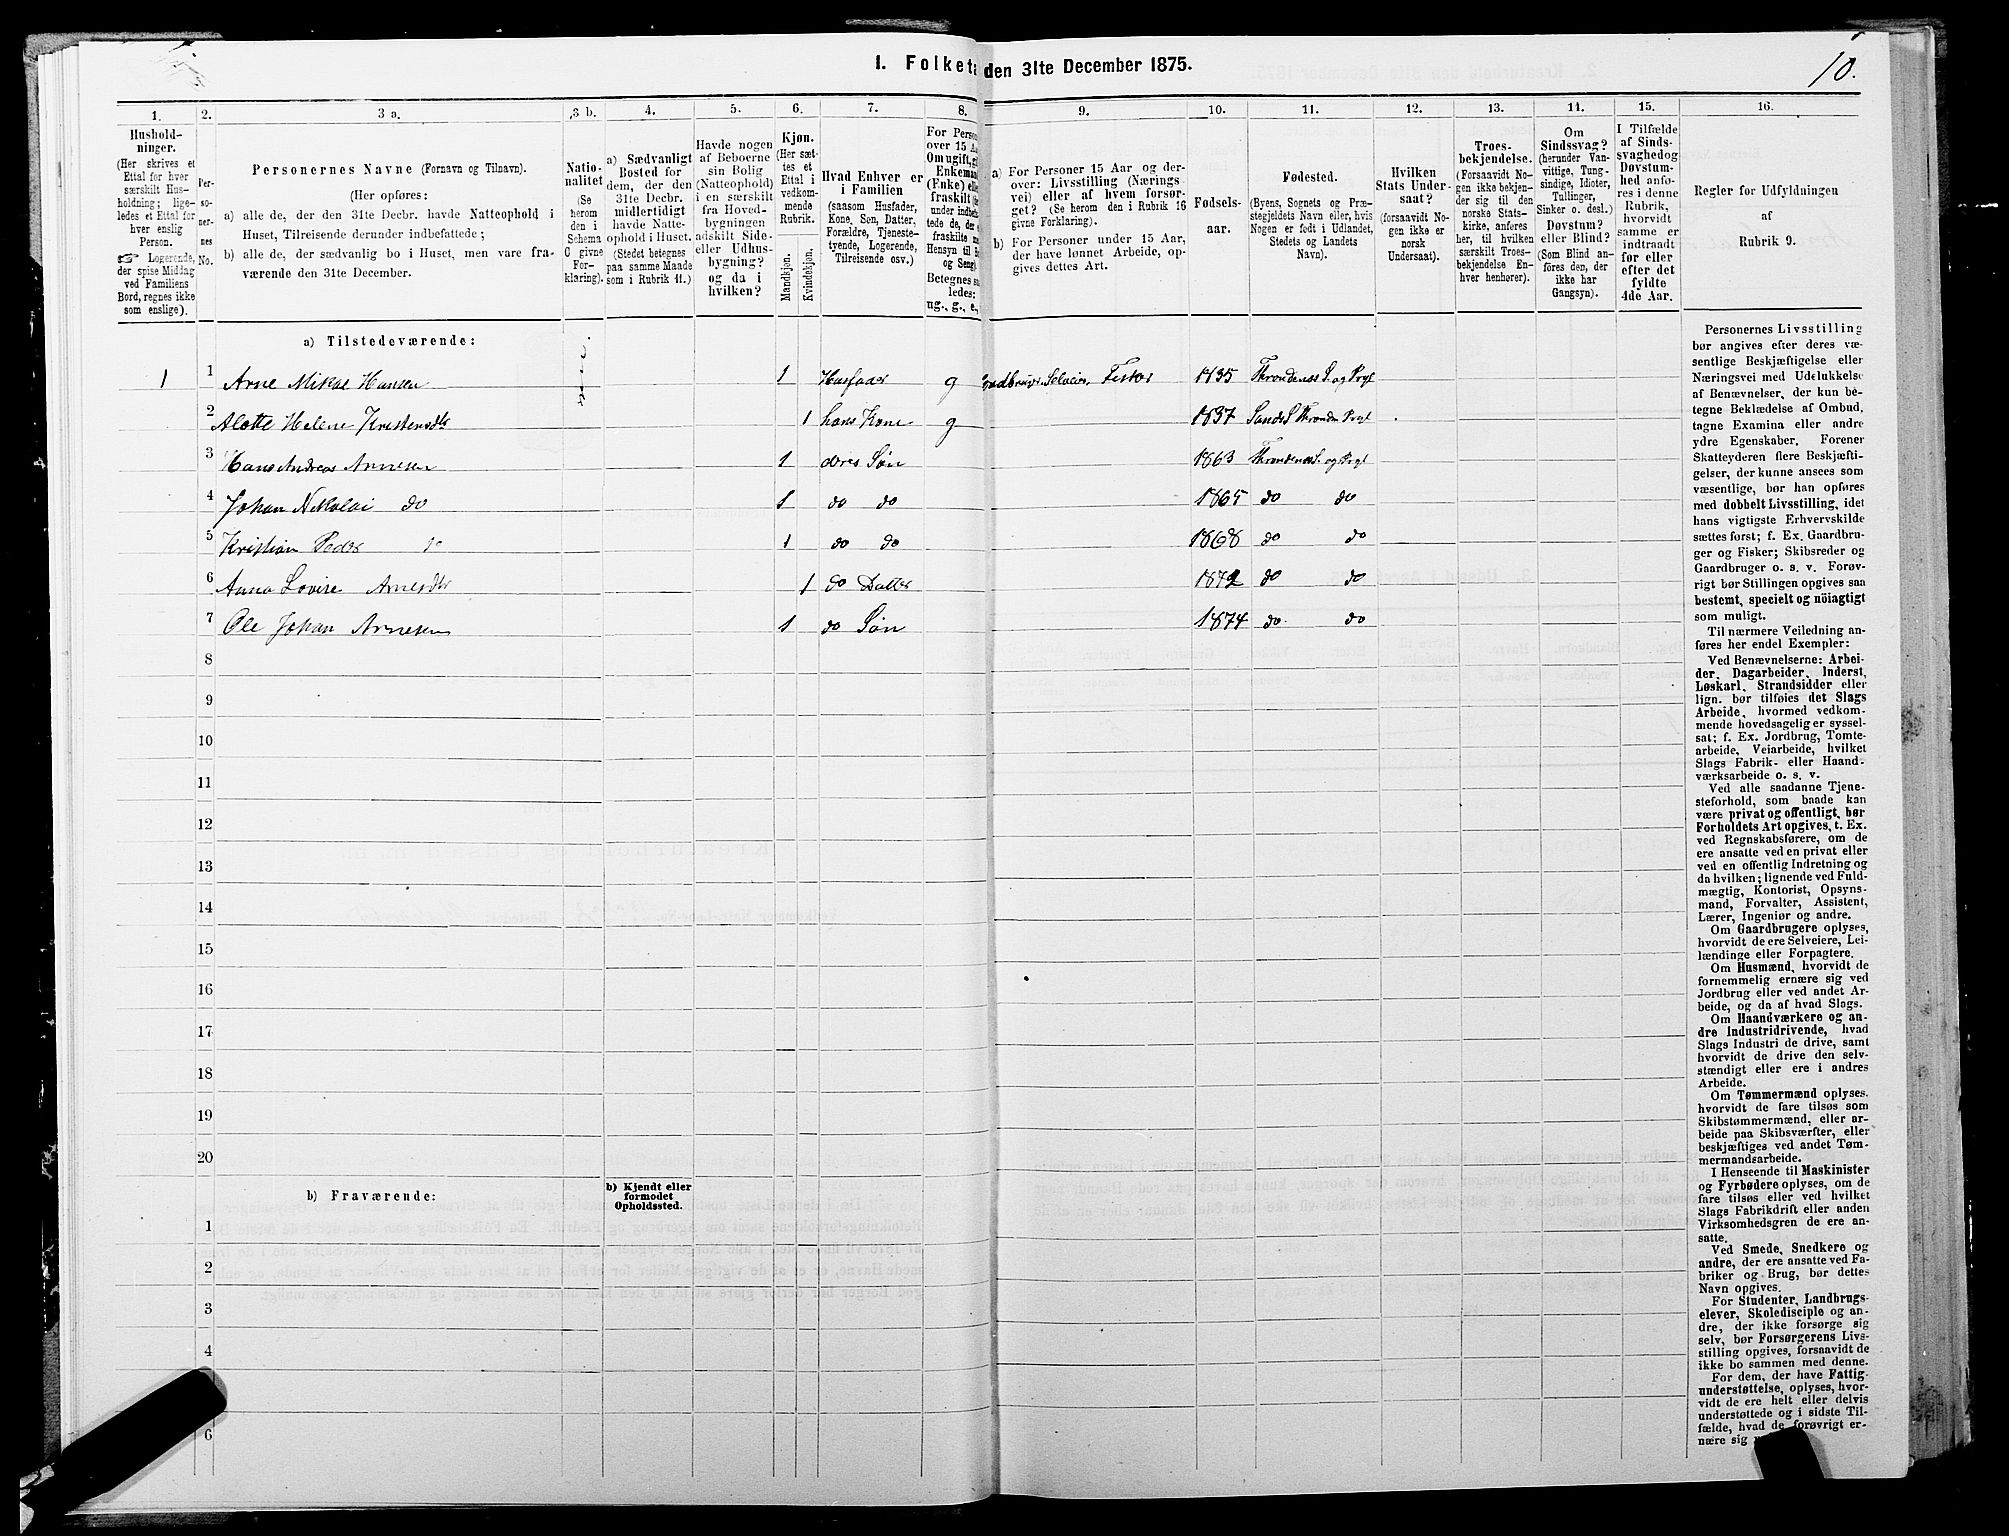 1. Folketæ den 31te December 1875.
10.
1. 2. 3 a. 3 b. 4. 5. 6. 7. 8. 9. 10. 11. 12. 13. 14. 15. 16.
Hushold-
ninger.
(Her skrives et
Ettal for hver
særskilt Hus-
holdning; lige-
ledes et Ettal for
hver enslig
Person.
☞ Logerende,
der spise Middag
ved Familiens
Bord, regnes ikke
som enslige).
Per-
so-
ner-
nes
No.
Personernes Navne (Fornavn og Tilnavn).
(Her opføres:
a) alle de, der den 31te Decbr. havde Natteophold i
Huset, Tilreisende derunder indbefattede;
b) alle de, der sædvanlig bo i Huset, men vare fra-
værende den 31te December.
Natio-
nalitet
(Se
herom
den i
Schema
C givne
For-
klaring).
a) Sædvanligt
Bosted for
dem, der den
31te Decbr.
midlertidigt
havde Natte-
ophold i Huset.
(Stedet betegnes
paa samme Maade
som i Rubrik 11.)
Havde nogen
af Beboerne
sin Bolig
(Natteophold)
i en særskilt
fra Hoved-
bygningen
adskilt Side-
eller Udhus-
bygning?
og da i
hvilken?
Kjøn.
(Her sæt-
tes et
Ettal i
vedkom-
mende
Rubrik.
Mandkjøn.
Kvindekjøn.
Hvad Enhver er
i Familien
(saasom Husfader,
Kone, Søn, Datter.
Forældre, Tjeneste-
tyende, Logerende,
Tilreisende osv.)
For Person
over 15 Aa
Om ugift, gi
Enkeman
(Enke) elle
fraskilt (
under indbe
tede de, der
fraskilte m
Hensyn til B
og Seng)
Betegnes sa
ledes:
ug., g., e.,
a) For Personer 15 Aar og der-
over: Livsstilling (Nærings
vei) eller af hvem forsør-
get? (Se herom den i Rubrik 16
givne Forklaring).
b) For Personer under 15 Aar,
der have lønnet Arbeide, op-
gives dettes Art.
Fødsels-
aar.
Fødested.
(Byens, Sognets og Præ-
stegjeldets Navn eller, hvis
Nogen er født i Udlandet,
Stedets og Landets
Navn).
Hvilken
Stats Under-
saat?
(forsaavidt No-
gen ikke er
norsk
Undersaat).
Troes-
bekjendelse.
(Forsaavidt No-
gen ikke bekjen-
der sig til den
norske Stats-
kirke, anføres
her, til hvilken
særskilt Troes-
bekjendelse En-
hver henhører).
Om
Sindssvag?
(herunder Van-
vittige, Tung-
sindige, Idioter,
Tullinger,
Sinker o. desl.)
Døvstum?
eller Blind?
(Som Blind an-
føres den, der
ikke har
Gangsyn).
I Tilfælde
af Sinds-
svaghed og
Døvstum-
hed anfø-
res i denne
Rubrik,
hvorvidt
samme er
indtraadt
før eller
efter det
fyldte
4de Aar.
Regler for Udfyldningen
af
Rubrik 9.
a) Tilstedeværende:
1 1 Arne Mikal Hansen 1 Husfader g Selveier, Fisker 1835 Throndenæs S. og Prgl
2 Alette Helene Kristensdtr 1 hans Kone g 1837 Sands S. Thronden Prgl
3 Hans Andreas Arnesen 1 deres Søn 1863 Throndenæs S. og Prgl
4 Johan Nikolai do 1 do do 1865 do do
5 Kristian Peder do 1 do do 1868 do do
6 Anna Lovise Arnesdtr 1 do Datter 1872 do do
7 Ole Johan Arnesen 1 do Søn 1874 do do
8
9
10
11
12
13
14
15
16
17
18
19
20
b) Fraværende:
b) Kjendt eller
formodet
Opholdssted.
1
2
3
4
6
Personernes Livsstilling
bør angives efter deres væ-
sentlige Beskjæftigelse eller
Næringsvei med Udelukkelse
af Benævnelser, der kun be-
tegne Beklædelse af Ombud,
tagne Examina eller andre
ydre Egenskaber. Forener
Skatteyderen flere Beskjæfti-
gelser, der kunne ansees som
væsentlige, bør han opføres
med dobbelt Livsstilling, idet
hans vigtigste Erhvervskilde
sættes først; f. Ex. Gaardbru-
ger og Fisker; Skibsreder og
Gaardbruger o. s. v. Forøv-
rigt bør Stillingen opgives saa
bestemt, specielt og nöiagtigt
som muligt.
Til nærmere Veiledning an-
føres her endel Exempler:
Ved Benævnelserne: Arbei-
der, Dagarbeider, Inderst,
Løskarl, Strandsidder eller
lign. bør tilføies det Slags
Arbeide, hvormed vedkom-
mende hovedsagelig er syssel-
sat; f. Ex. Jordbrug, Tomte-
arbeide, Veiarbeide, hvilket
Slags Fabrik- eller Haand-
værksarbeide o. s. v.
Ved alle saadanne Tjene-
steforhold, som baade kan
være privat og offentligt, bør
Forholdets Art opgives, t. Ex.
ved Regnskabsførere, om de
ere ansatte ved en privat eller
ved en offentlig Indretning og
da hvilken; lignende ved Fuld-
mægtig, Kontorist, Opsyns-
mand, Forvalter, Assistent,
Lærer, Ingeniør og andre.
Om Gaardbrugere oplyses,
hvorvidt de ere Selveiere, Lei-
lændinge eller Forpagtere.
Om Husmænd, hvorvidt de
fornemmelig ernære sig ved
Jordbrug eller ved andet Ar-
beide, og da af hvad Slags.
Om Haandværkere og an-
dre Industridrivende, hvad
Slags Industri de drive, samt
hvorvidt de drive den selv-
stændigt eller ere i andres
Arbeide.
Om Tømmermænd oplyses.
hvorvidt de fare tilsøs som
Skibstømmermænd, eller ar-
beide paa Skibsværfter, eller
beskjæftiges ved andet Tøm-
mermandsarbeide.
I Henseende til Maskinister
og Fyrbødere oplyses, om de
fare tilsøs eller ved hvilket
Slags Fabrikdrift eller anden
Virksomhedsgren de ere an-
satte.
Ved Smede, Snedkere og
andre, der ere ansatte ved Fa-
briker og Brug, bør dettes
Navn opgives.
For Studenter, Landbrugs-
elever, Skoledisciple og an-
dre, der ikke forsørge sig
selv, bør Forsørgerens Livs-
stilling opgives, forsaavidt de
ikke bo sammen med denne.
For dem, der have Fattig-
understøttelse, oplyses, hvor-
vidt de ere helt eller delvis
understøttede og i sidste Til-
fælde, hvad de forøvrigt er-
nære sig